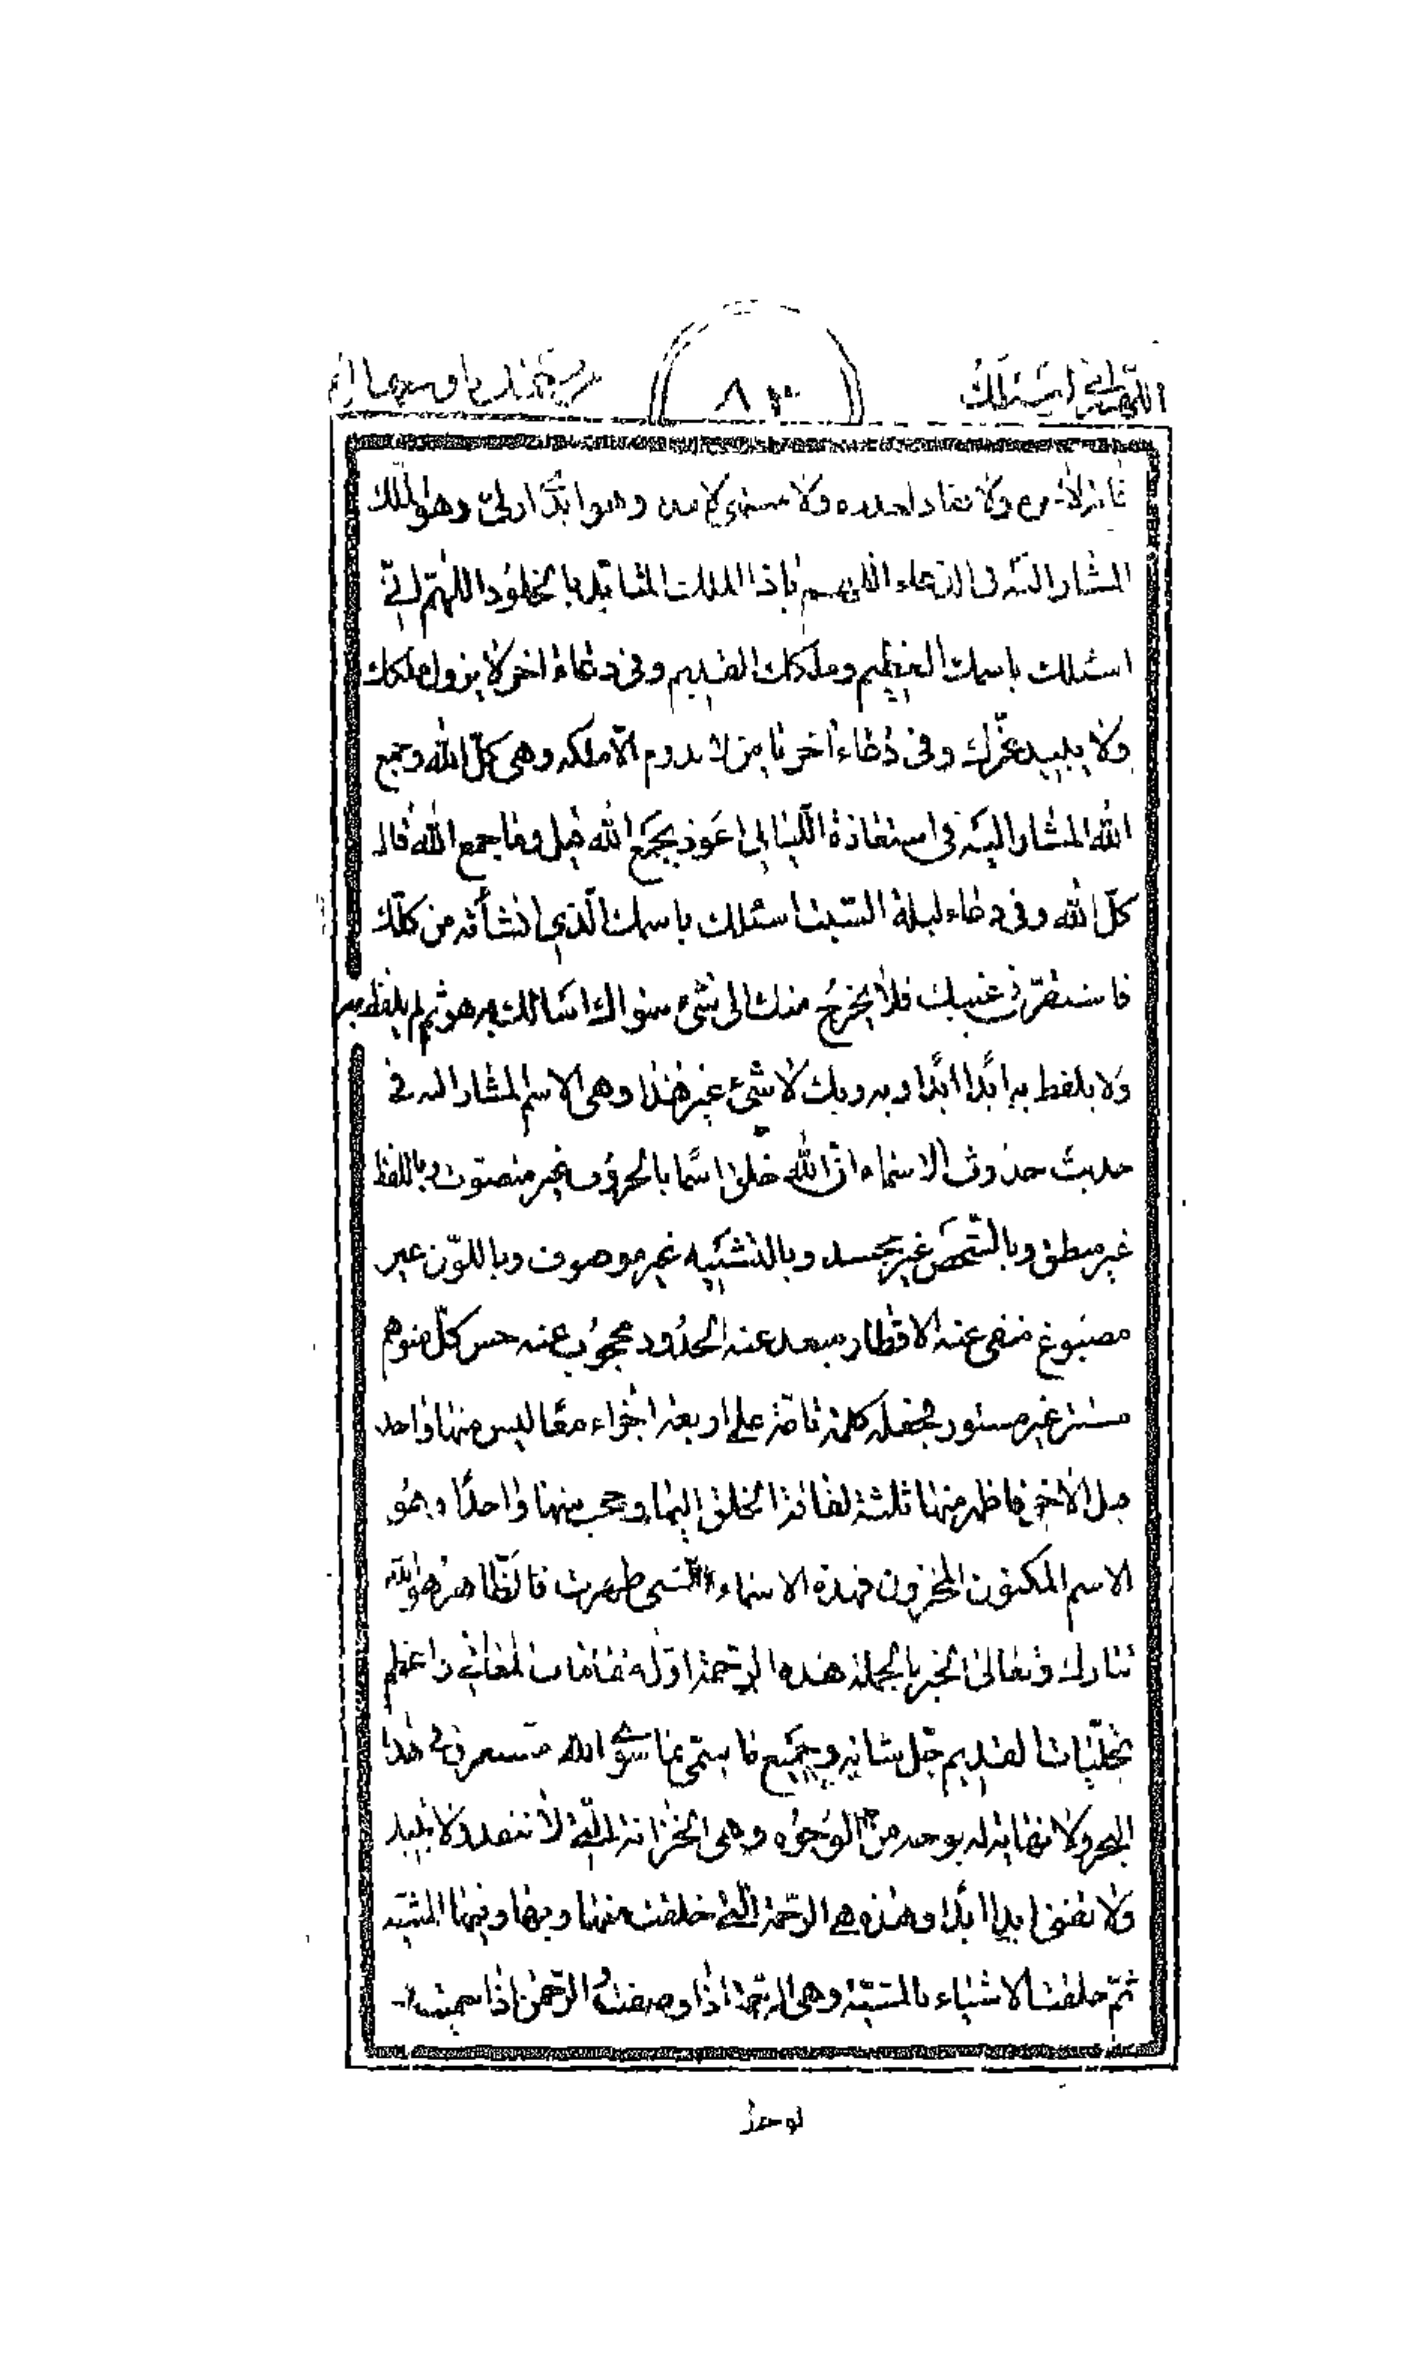 اللهم اني اسئلك
٨٢
ولا نفاد لعدده ولا منتهى لامده وهو ابدًا وهو الملك
المشار اليه فى الدعاء اللهم يا ذا الملك المتابد بالخلود اللهم اني
اسئلك باسمك العظيم وملكك القديم وفى دعاء اخر لا يزول ملكك
ولا يبيد عزّك وفى دعاء اخر يا من لا يدوم الّا ملكه وهى كلّ الله وجمع
الله المشار اليه فى استعاذة الليالى اعوذ بجمع الله قيل وما جمع الله قال
كلّ الله وفى دعاء ليلة السبت اسئلك باسمك الّذي انشأته من كلّك
فاستقرّ فى غيبك فلا يخرج منك الى شىء سواك اسألك به هو ثم لم يلفظ به
ولا يلفظ به ابدًا ابدًا وبه وبك لا شىء غير هذا وهى الاسم المشار اليه في
حديث حدوث الاسماء انّ الله خلق اسمًا بالحروف غير منصوّت وباللفظ
غير منطق وبالشخص غير مجسد وبالتشبيه غير موصوف وباللّون غير
مصبوغ منفى عنه الاقطار مبعد عنه الحدود محجوب عنه حس كلّ متوهم
مستتر غير مستور فجعله كلمة تامّة على اربعة اجزاء معًا ليس منها واحد
قبل الاخر فاظهر منها ثلثة لفاقة الخلق اليها وحجب منها واحدًا وهو
الاسم المكنون المخزون فهذه الاسماء التى ظهرت فالظّاهر هو الله
تبارك وتعالى الخبر بالجملة هذه الرحمة اول مقامات المعاني واعظم
تجليّات القديم جلّ شانه وجميع ما يسمى بما سوى الله مستغرق فى هذا
البحر ولا نهاية له بوجه من الوجوه وهى الخزانة الّتي لا تنفد ولا تبيد
ولا تفنى ابدا ابدًا وهذه هي الرحمة الّتي خلقت منها وبها وفيها المشية
ثمّ خلقت الاشياء بالمشيّة وهى الرحمة اذا وصفت الرحمن اذا سميت
توحيد